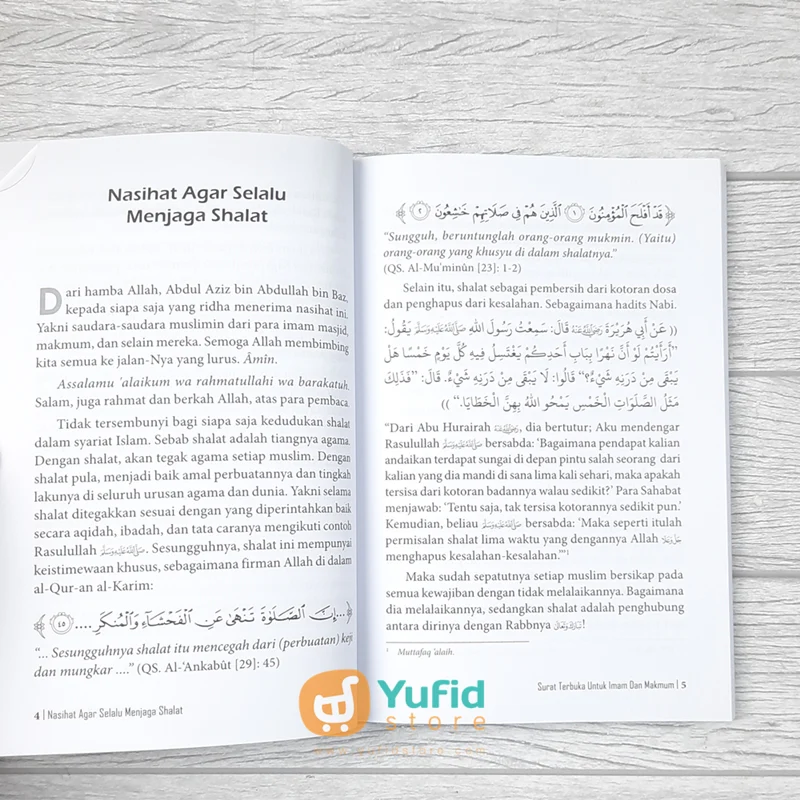 Nasihat Agar Selalu
Menjaga Shalat
Dari hamba Allah, Abdul Aziz bin Abdullah bin Baz,
kepada siapa saja yang ridha menerima nasihat ini.
Yakni saudara-saudara muslimin dari para imam masjid,
makmum, dan selain mereka. Semoga Allah membimbing
kita semua ke jalan-Nya yang lurus. Âmîn.
Assalamu 'alaikum wa rahmatullahi wa barakatuh.
Salam, juga rahmat dan berkah Allah, atas para pembaca.
Tidak tersembunyi bagi siapa saja kedudukan shalat
dalam syariat Islam. Sebab shalat adalah tiangnya agama.
Dengan shalat, akan tegak agama setiap muslim. Dengan
shalat pula, menjadi baik amal perbuatannya dan tingkah
lakunya di seluruh urusan agama dan dunia. Yakni selama
shalat ditegakkan sesuai dengan yang diperintahkan baik
secara aqidah, ibadah, dan tata caranya mengikuti contoh
Rasulullah ﷺ. Sesungguhnya, shalat ini mempunyai
keistimewaan khusus, sebagaimana firman Allah di dalam
al-Qur-an al-Karim:
﴿...إِنَّ ٱلصَّلَوٰةَ تَنْهَىٰ عَنِ ٱلْفَحْشَآءِ وَٱلْمُنكَرِ .... ٤٥﴾
"... Sesungguhnya shalat itu mencegah dari (perbuatan) keji
dan mungkar ...." (QS. Al-'Ankabût [29]: 45)
4 | Nasihat Agar Selalu Menjaga Shalat
﴿قَدْ أَفْلَحَ ٱلْمُؤْمِنُونَ ١ ٱلَّذِينَ هُمْ فِى صَلَاتِهِمْ خَـٰشِعُونَ ٢﴾
"Sungguh, beruntunglah orang-orang mukmin. (Yaitu)
orang-orang yang khusyu di dalam shalatnya."
(QS. Al-Mu'minûn [23]: 1-2)
Selain itu, shalat sebagai pembersih dari kotoran dosa
dan penghapus dari kesalahan. Sebagaimana hadits Nabi.
(( عَنْ أَبِي هُرَيْرَةَ رَضِيَ اللَّهُ عَنْهُ قَالَ: سَمِعْتُ رَسُولَ اللهِ ﷺ يَقُولُ:
"أَرَأَيْتُمْ لَوْ أَنَّ نَهْرًا بِبَابِ أَحَدِكُمْ يَغْتَسِلُ فِيهِ كُلَّ يَوْمٍ خَمْسًا هَلْ
يَبْقَى مِنْ دَرَنِهِ شَيْءٌ؟" قَالُوا: لَا يَبْقَى مِنْ دَرَنِهِ شَيْءٌ. قَالَ: "فَذَلِكَ
مَثَلُ الصَّلَوَاتِ الْخَمْسِ يَمْحُو اللهُ بِهِنَّ الْخَطَايَا." ))
"Dari Abu Hurairah رَضِيَ اللَّهُ عَنْهُ, dia bertutur; Aku mendengar
Rasulullah ﷺ bersabda: 'Bagaimana pendapat kalian
andaikan terdapat sungai di depan pintu salah seorang dari
kalian yang dia mandi di sana lima kali sehari, maka apakah
tersisa dari kotoran badannya walau sedikit?' Para Sahabat
menjawab: 'Tentu saja, tak tersisa kotorannya sedikit pun.'
Kemudian, beliau ﷺ bersabda: 'Maka seperti itulah
permisalan shalat lima waktu yang dengannya Allah
menghapus kesalahan-kesalahan.'"1
Maka sudah sepatutnya setiap muslim bersikap pada
semua kewajiban dengan tidak melalaikannya. Bagaimana
dia melalaikannya, sedangkan shalat adalah penghubung
antara dirinya dengan Rabbnya !
1 Muttafaq 'alaih.
Surat Terbuka Untuk Imam Dan Makmum | 5
Yufid
store